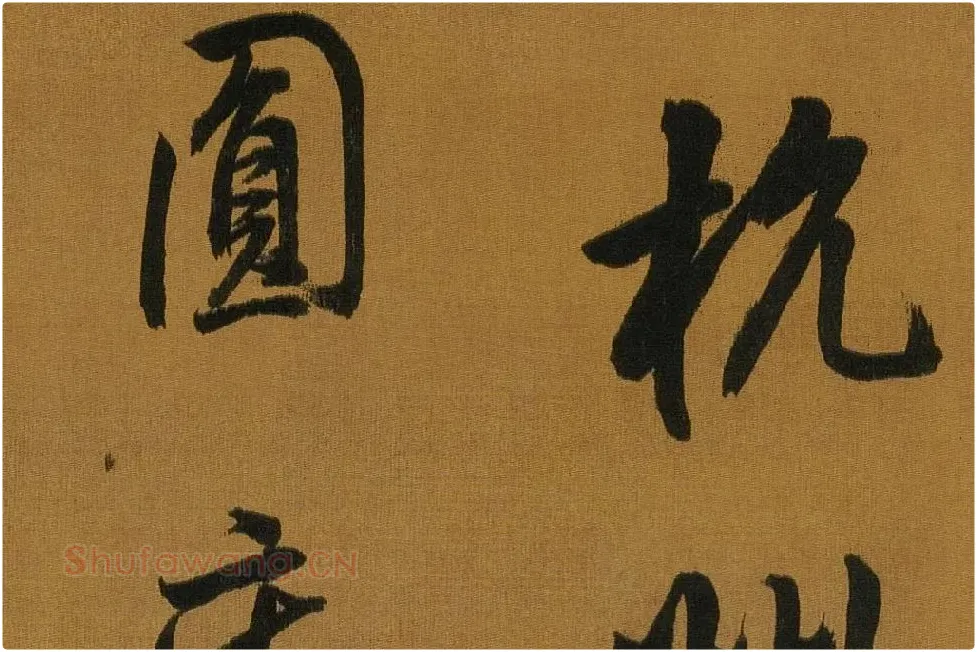 杭州
圓
Shufawang.CN